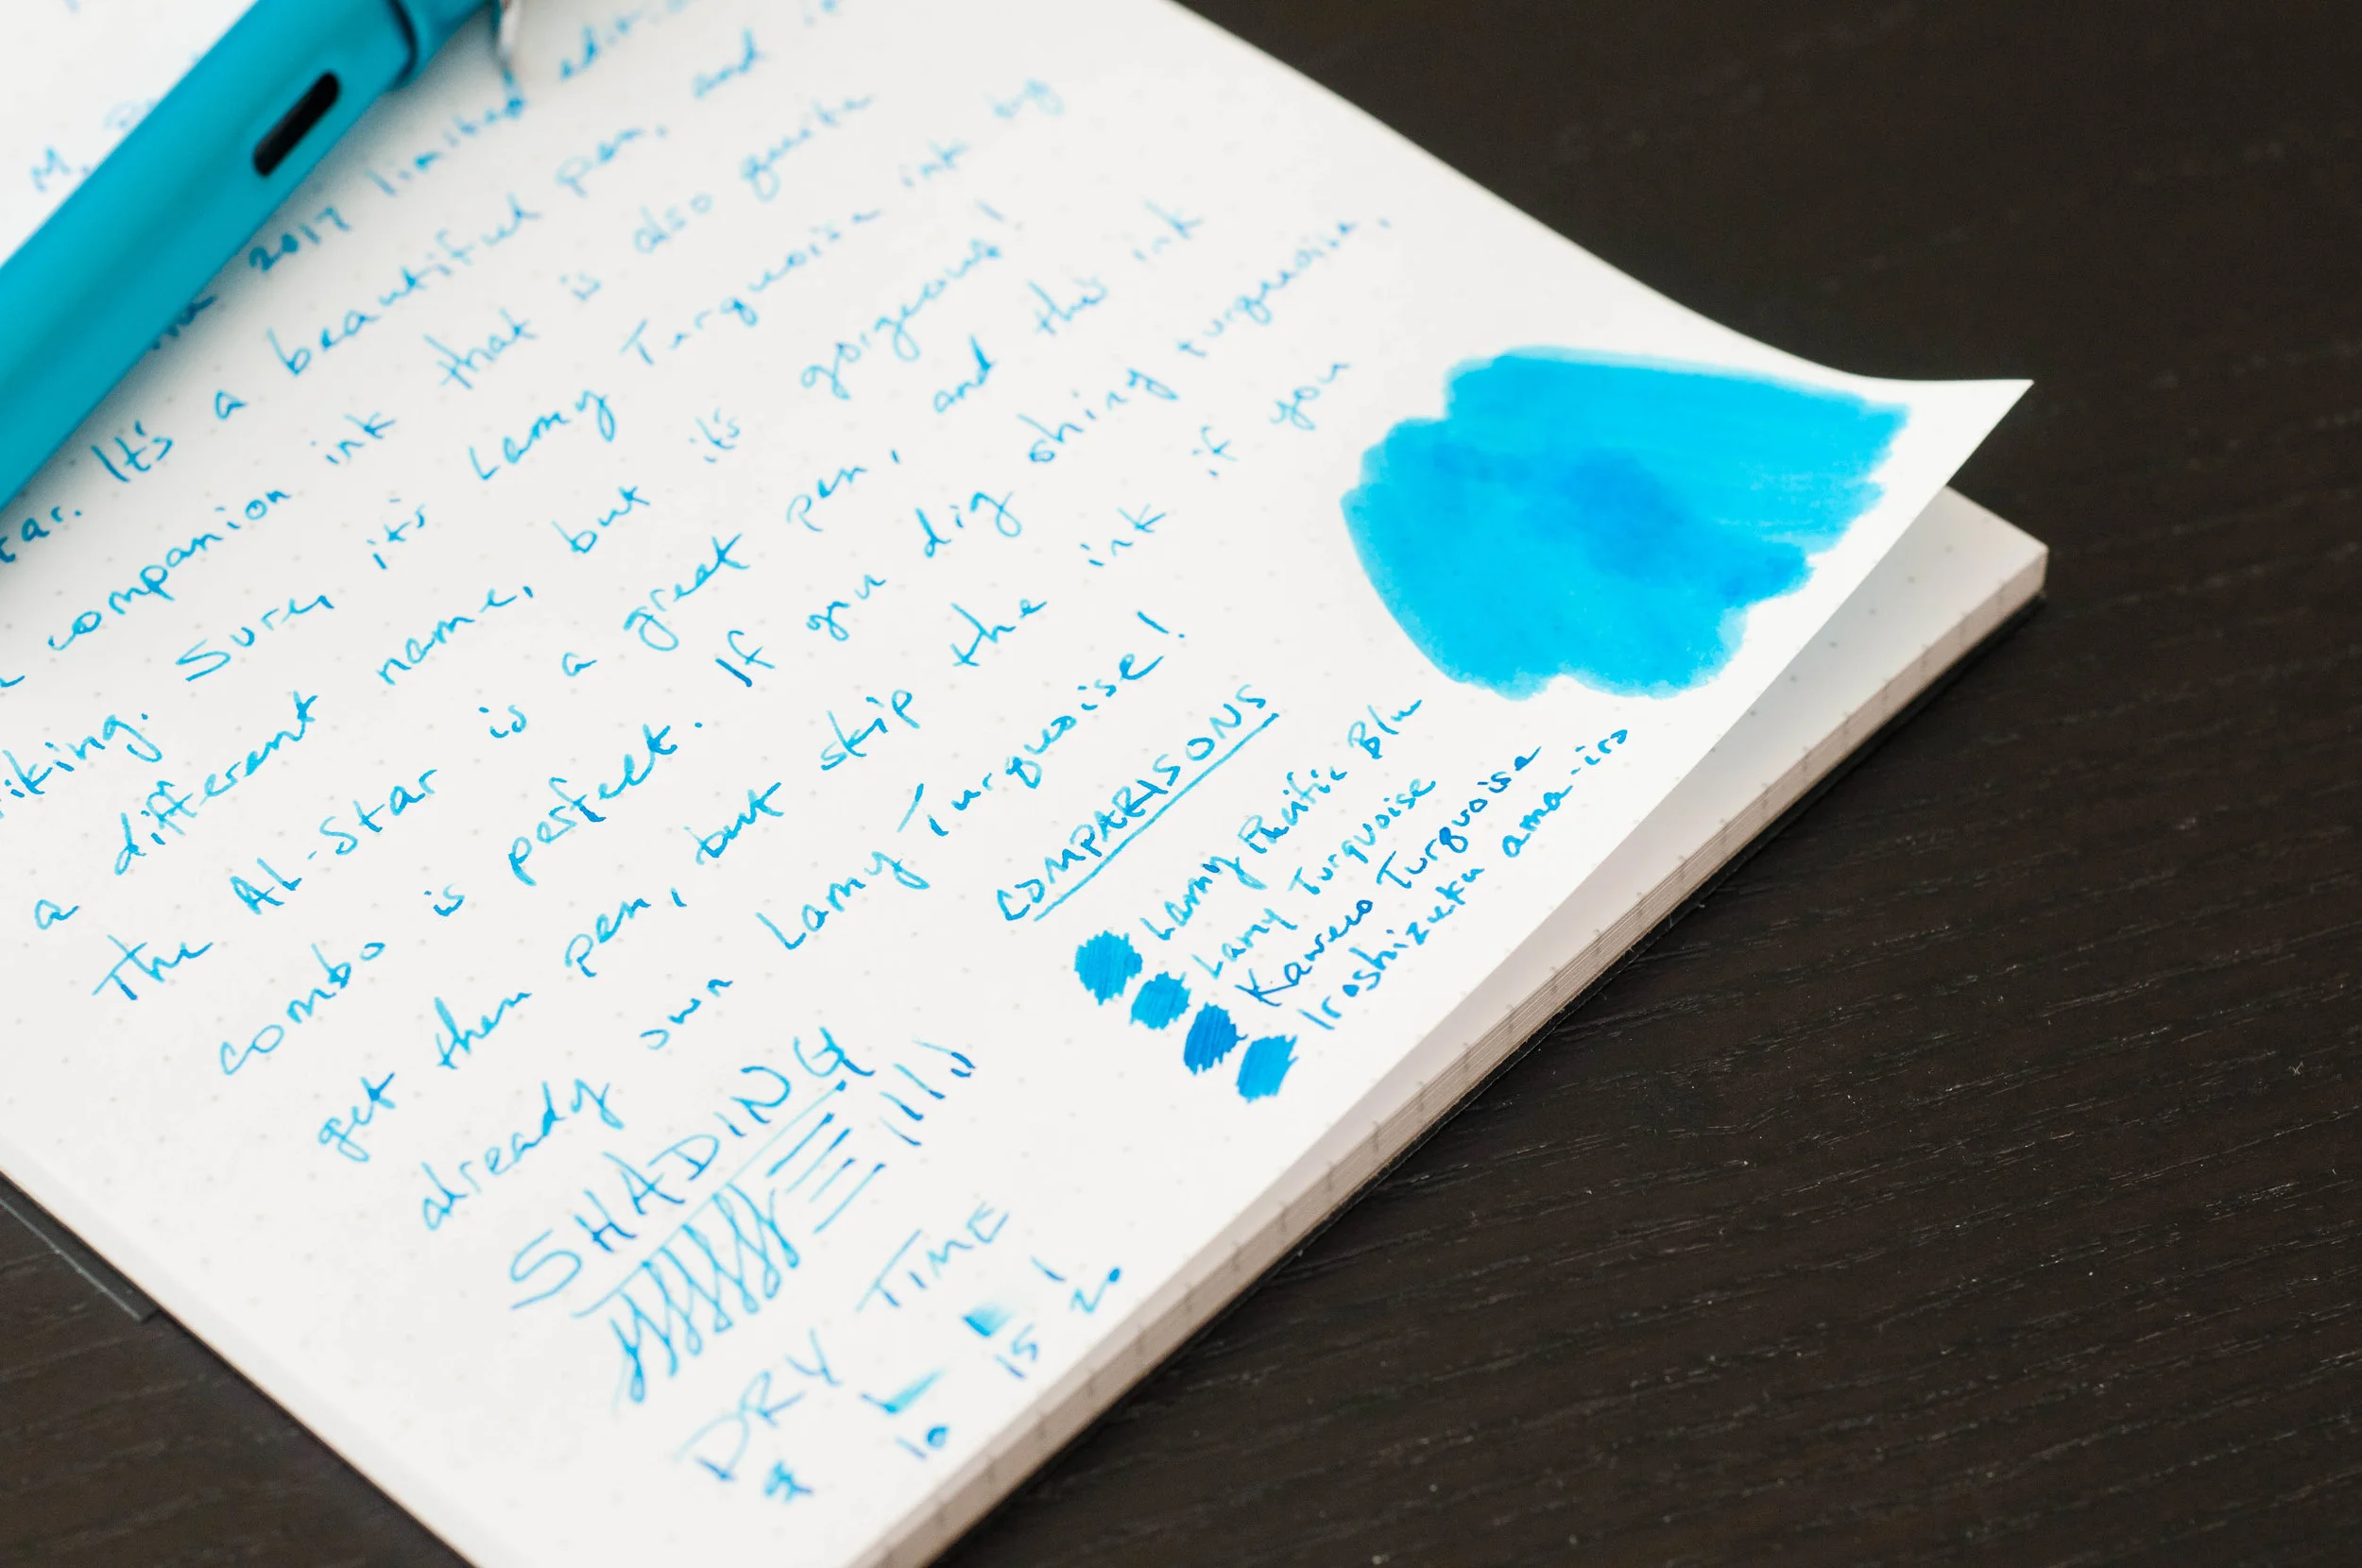 M.
2017 limited edition
tar. It's a beautiful pen, and it
companion ink that is also quite
riking. Sure, it's Lamy Turquoise ink by
a different name, but it's gorgeous!
The AL-Star is a great pen, and the ink
combo is perfect. If you dig shiny turquoise,
get then pen, but skip the ink if you
already own Lamy Turquoise!
COMPARISONS
Lamy Pacific Blu
Lamy Turquoise
Kaweco Turquoise
Iroshizuku ama-iro
SHADING
DRY TIME
10 15 20